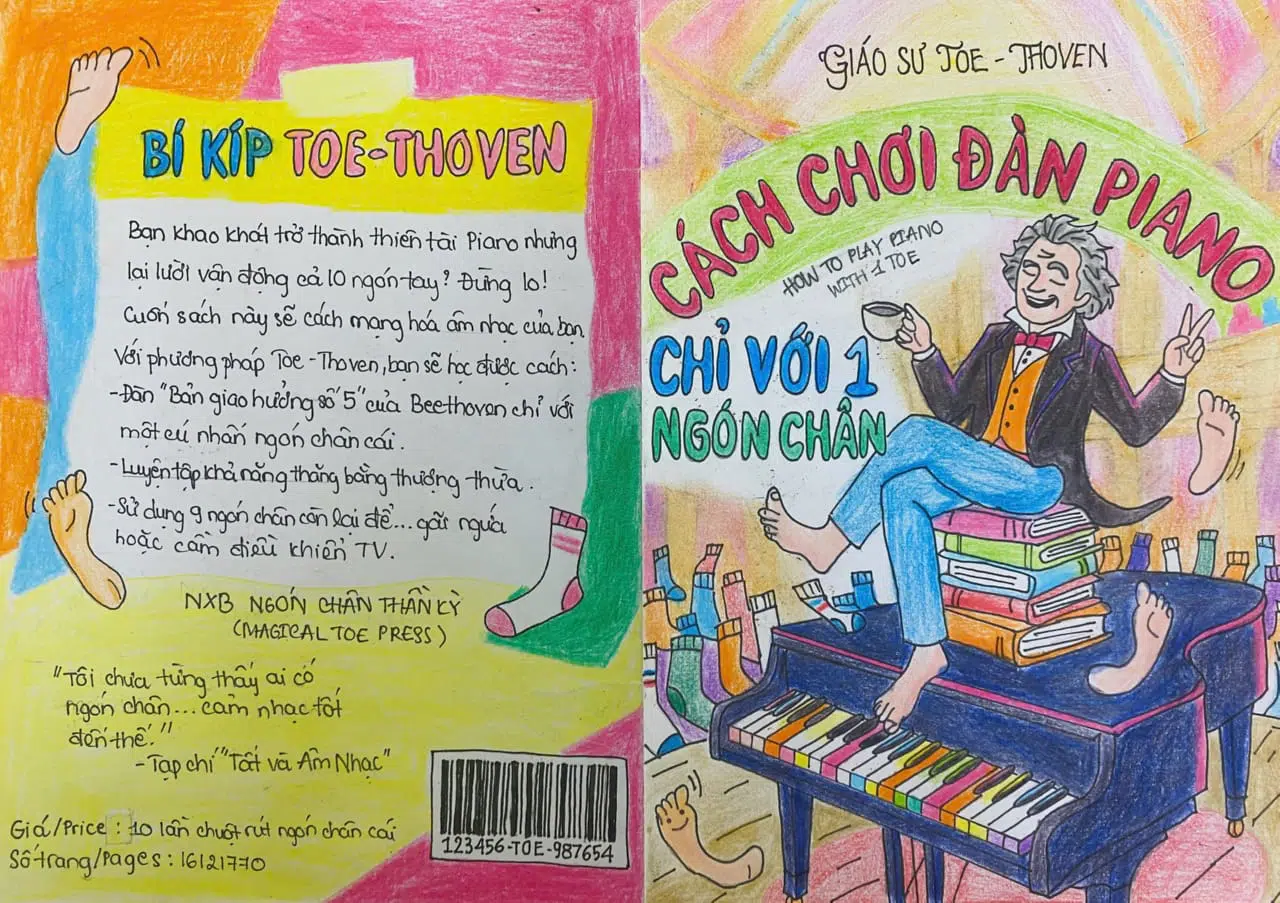 BÍ KÍP TOE-THOVEN
Bạn khao khát trở thành thiên tài Piano nhưng
lại lười vận động cả 10 ngón tay? Đừng lo!
Cuốn sách này sẽ cách mạng hoá âm nhạc của bạn.
Với phương pháp Toe-Thoven, bạn sẽ học được cách:
-Đàn "Bản giao hưởng số 5" của Beethoven chỉ với
một cú nhấn ngón chân cái.
-Luyện tập khả năng thăng bằng thượng thừa.
-Sử dụng 9 ngón chân còn lại để... gãi ngứa
hoặc cầm điều khiển TV.
NXB NGÓN CHÂN THẦN KỲ
(MAGICAL TOE PRESS)
"Tôi chưa từng thấy ai có
ngón chân... cảm nhạc tốt
đến thế."
-Tạp chí "Tất và Âm Nhạc"
Giá/Price: 10 lần chuột rút ngón chân cái
Số trang/Pages: 16121770
123456-TOE-987654
GIÁO SƯ TOE-THOVEN
CÁCH CHƠI ĐÀN PIANO
HOW TO PLAY PIANO
WITH 1 TOE
CHỈ VỚI 1
NGÓN CHÂN